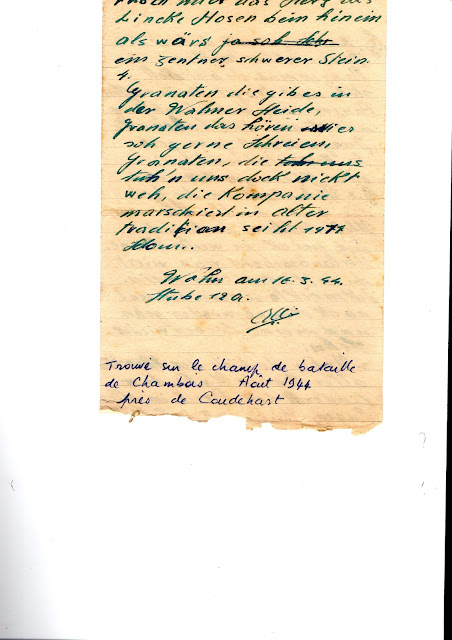 mir das Herz
Lincke Hosen bein hinein
als wärs ja soh
ein zentner schwerer Stein.
4.
Granaten die gibes in
der Wahner Heide,
Granaten das hören wier
soh gerne Schreien
Granaten, die uns
tuh'n uns dock nickt
weh, die Kompanie
marschiert in alter
tradition seiht 19
Wahn am 16.3.44.
Stube 12a.
Trouvé sur le champ de bataille
de Chambois Août 1944
près de Coudehart